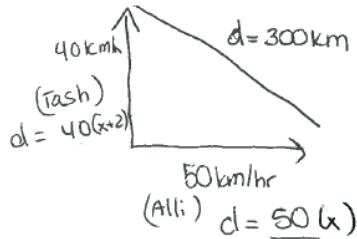 40kmh
d=300km
(Tash)
d= 40(x+2)
50km/hr
(Alli)
d= 50(x)